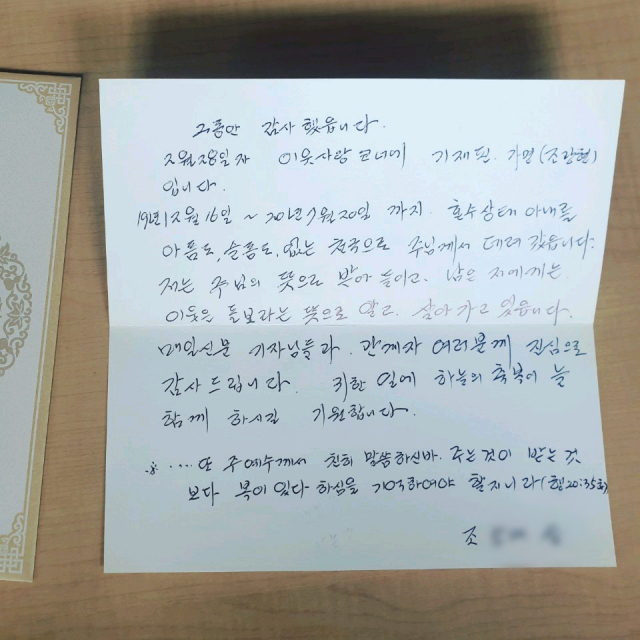 그동안 감사 했읍니다.
2월28일자 이웃사랑 코너에 기재된 가명(조랑현)
입니다.
19년12월16일 ~ 20년7월20일 까지. 혼수상태 아내를
아픔도, 슬픔도, 없는 천국으로 주님께서 데려 갔읍니다.
저는 주님의 뜻으로 받아 들이고, 남은 저에게는
이웃을 돌보라는 뜻으로 알고. 살아가고 있읍니다.
매일신문 기자님들과. 관계자 여러분께 진심으로
감사 드립니다. 귀한 일에 하늘의 축복이 늘
함께 하시길 기원합니다.
※ .... 또 주 예수께서 친히 말씀하신바. 주는것이 받는 것
보다 복이 있다 하심을 기억하여야 할지니라(행20:35하)
조